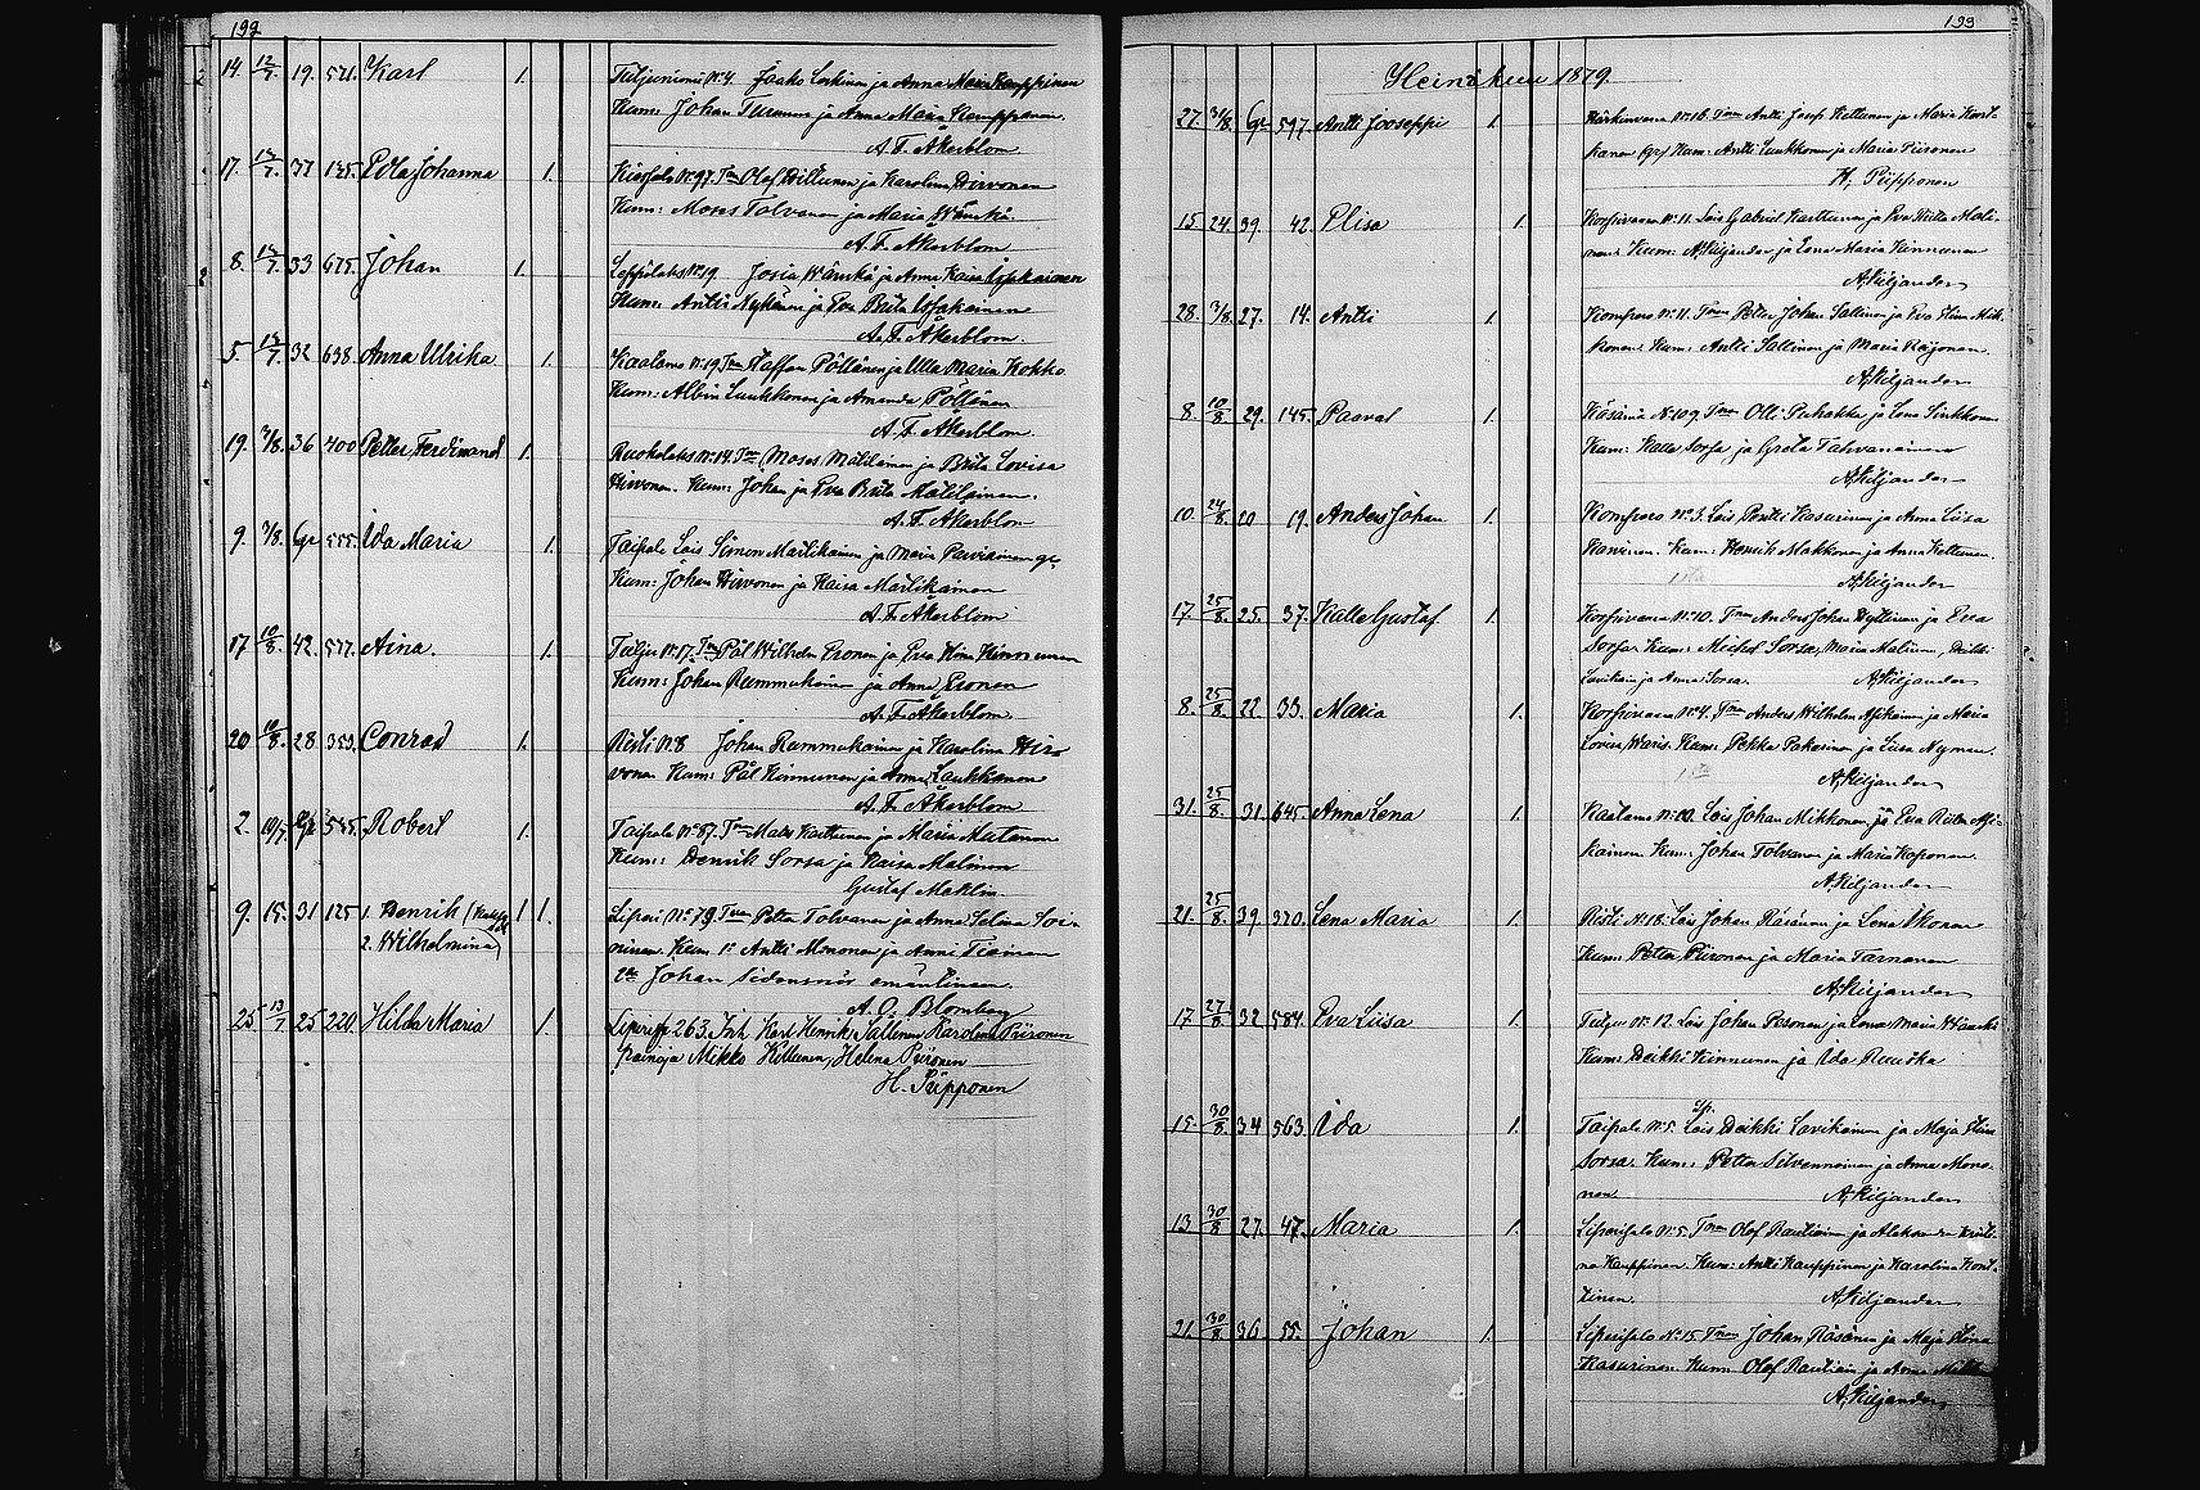 192
14. 12/7. 19. 521. Karl 1. Tuljuniemi No 4. Jaako Lerkinen ja Anna Maria Kauppinen
Kum: Johan Turunen ja Anna Maria Kauppinen.
A. F. Åkerblom.
17. 13/7. 37 135. Edla Johanna 1. No 97. Tm Olof Hiltunen ja Karolina Hirvonen
Kum: Moses Tolvanen ja Maria Wänskä.
A. F. Åkerblom
8. 13/7. 33 675. Johan 1. Leppälaks No 19 Josia Wänskä ja Anna Kaisa
Kum: Antti Nykänen ja Eva Brita
A. F. Åkerblom.
5. 13/7 32 638. Anna Ulrika. 1. Kaatamo No 19 Tm Staffan Pöllänen ja Ulla Maria Kokko
Kum: Albin Luukkonen ja Amanda Pöllänen
A. F. Åkerblom.
19. 3/8. 36 400 Petter Ferdinand 1. Ruokolaks No 14. Tm Moses Mäliläinen ja Brita Lovisa
Hirvonen. Kum: Johan ja Eva Brita Mäliläinen.
A. F. Åkerblom
9. 3/8. Gr 555. Ida Maria 1. Taipale Lois Simon Martikainen ja Maria Parviainen gr
Kum: Johan Hirvonen ja Kaisa Martikainen
A. F. Åkerblom
17 10/8. 42. 577. Aina. 1. Tulju No 17. Tm Pål Wilhelm Eronen ja Eva Stina Kinnunen
Kum: Johan Rummukainen ja Anna Eronen
A. F. Åkerblom.
20 10/8. 28 353. Conrad 1. Risti N. 8 Johan Rummukainen ja Karolina Hir-
vonen Kum: Pål Kinnunen ja Anna Laukkanen
A. F. Åkerblom
2. 19/7. Gr 545. Robert 1. Taipale No 87. Tm Mats Karttunen ja Maria Mutanen
Kum: Henrik Sorsa ja Kaisa Malinen
Gustaf Maklin.
9. 15. 31 125 1. Henrik 1 1. Liperi No 79. Tm Petter Tolvanen ja Anna Selma Soi-
2. Wilhelmina ninen. Kum 1: Antti Mononen ja Anni Tiainen
2 Johan Sidensnör emäntineen.
A. O. Blomberg
25 13/7 25 220. Hilda Maria 1. Liperi 263. Inh Karl Henrik Sallinen Karolina Piironen
Mikko Kettunen, Helena Piironen
H. Piipponen
193
Heinäkuu 1879.
27. 31/8. Gr 597. Antti Jooseppi 1. No 16. Tm Antti Josef Kettunen ja Maria Kont-
kanen Gr/ Kum: Antti Luukkonen ja Maria Piironen
H. Piipponen
15. 24. 39. 42. Elisa 1. Korpivaara No 11. Lois Gabriel Karttunen ja Eva Riitta Mali-
nen. Kum: A. Kiljander ja Lena Maria Kinnunen
A. Kiljander
28. 3/8. 27. 14. Antti 1. Kompero No 11. Tm Petter Johan Sallinen ja Eva Stina Mik-
konen. Kum: Antti Sallinen ja Maria Reijonen.
A. Kiljander
8. 10/8. 29. 145. Paaval 1. Käsämä No 109. Tm Olli Puhakka ja Lena Sirkkonen
Kum: Kalle Sorsa ja Greta Tahvanainen
A. Kiljander
10. 24/8. 20 19. Anders Johan 1. Kompero No 3. Lois Pentti Kasurinen ja Anna Liisa
Karvinen. Kum: Henrik Makkonen ja Anna Kettunen.
A. Kiljander
17. 25/8. 25. 37. Kalle Gustaf. 1. Korpivaara No 10. Tm Anders Johan Hyttinen ja Eva
Sorsa Kum: Michel Sorsa, Maria Malinen, Heikki
Lavikain ja Anna Sorsa. A. Kiljander
8. 25/8. 22 33. Maria 1. Korpivaara No 4. Tm Anders Wilhelm Asikainen ja Maria
Lovisa Waris. Kum: Pekka Pakarinen ja Liisa Nyman.
A. Kiljander
31. 25/8. 31. 645. Anna Lena 1. Kaatamo No 10. Lois Johan Mikkonen ja Eva Riitta Asi-
kainen. Kum: Johan Tolvanen ja Maria Koponen.
A. Kiljander
21. 25/8. 39. 320. Lena Maria 1. Risti No 18. Lois Johan Räsänen ja Lena Ikonen
Kum: Petter Piironen ja Maria Tarnanen
A. Kiljander
17 27/8 32 584. Eva Liisa 1. Tulju No 12. Lois Johan Pesonen ja Lena Maria Wänskä
Kum: Heikki Kinnunen ja Ida Ruuska
15. 30/8. 34 563. Ida 1. Taipale No 5. Lois Heikki Lavikainen ja Maja Stina
Sorsa. Kum: Petter Silvennoinen ja Anna Mono-
nen. A. Kiljander
13 30/8 27. 47. Maria 1. Liperisalo No 5. Tm Olof Rautiainen ja Aleksandra Kristi-
na Kauppinen. Kum: Antti Kauppinen ja Karolina Kont-
tinen. A. Kiljander
21. 30/8 36. 55. Johan 1. Liperisalo No 15 Tm Johan Räsänen ja Maja Stina
Kasurinen. Kum: Olof Rautiain ja Anna
A. Kiljander